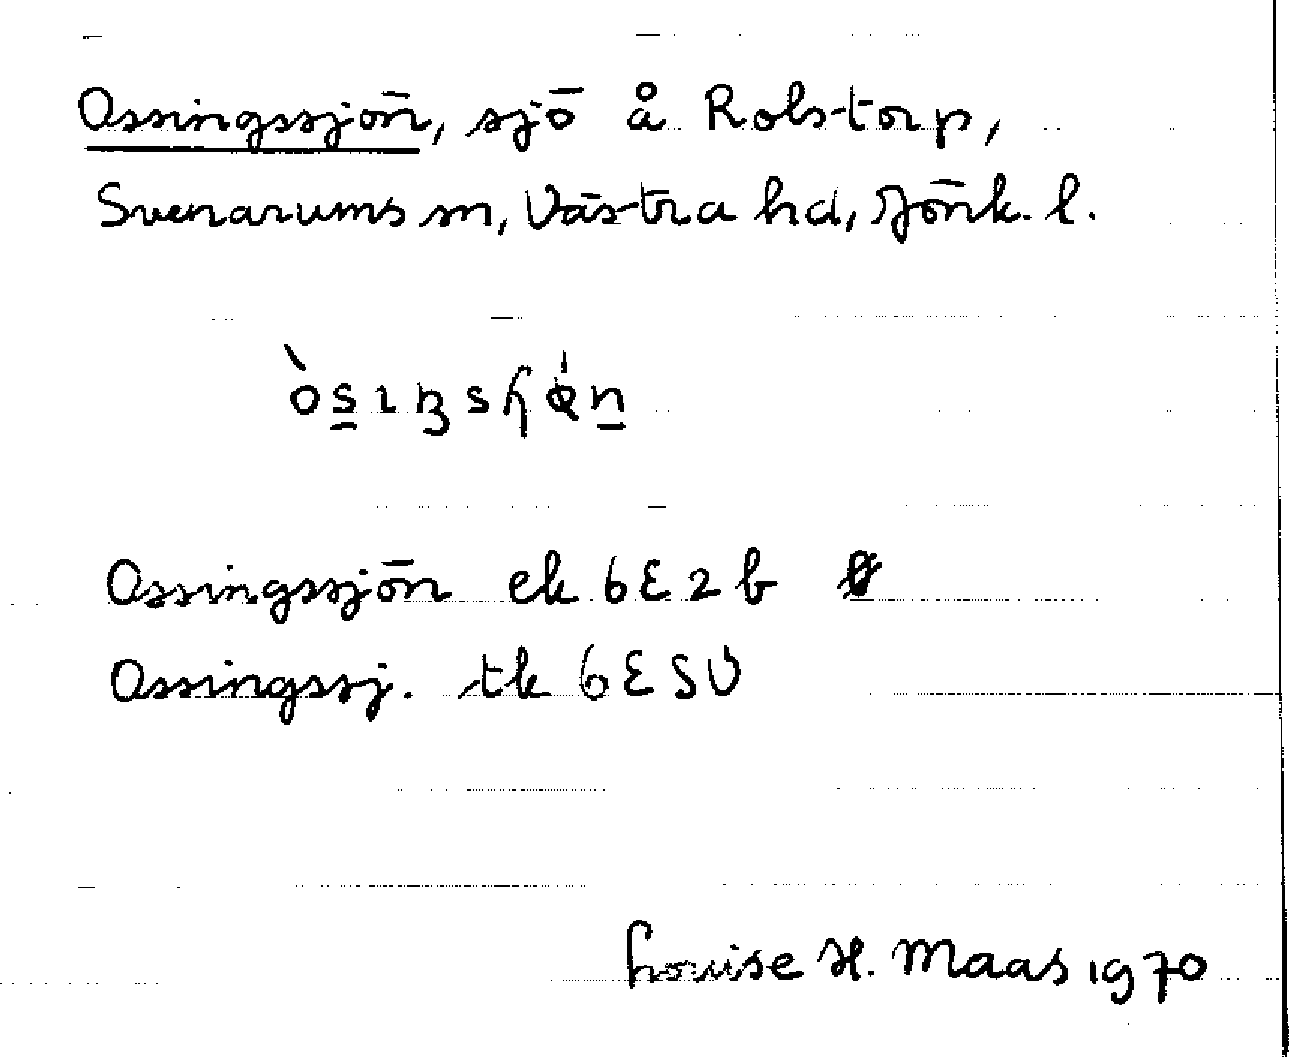 Ossingssjön, sjö å Rolstorp,
Svenarums sn, Västra hd, Jönk. l.
Ossingssjön ek 6E2b
Ossingssj. tk 6ESV
Louise H. Maas 1970